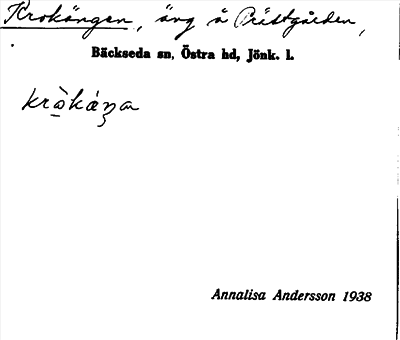 Krokängen, äng å Prästgården,
Bäckseda sn, Östra hd, Jönk. l.
kròkáŋa
Annalisa Andersson 1938